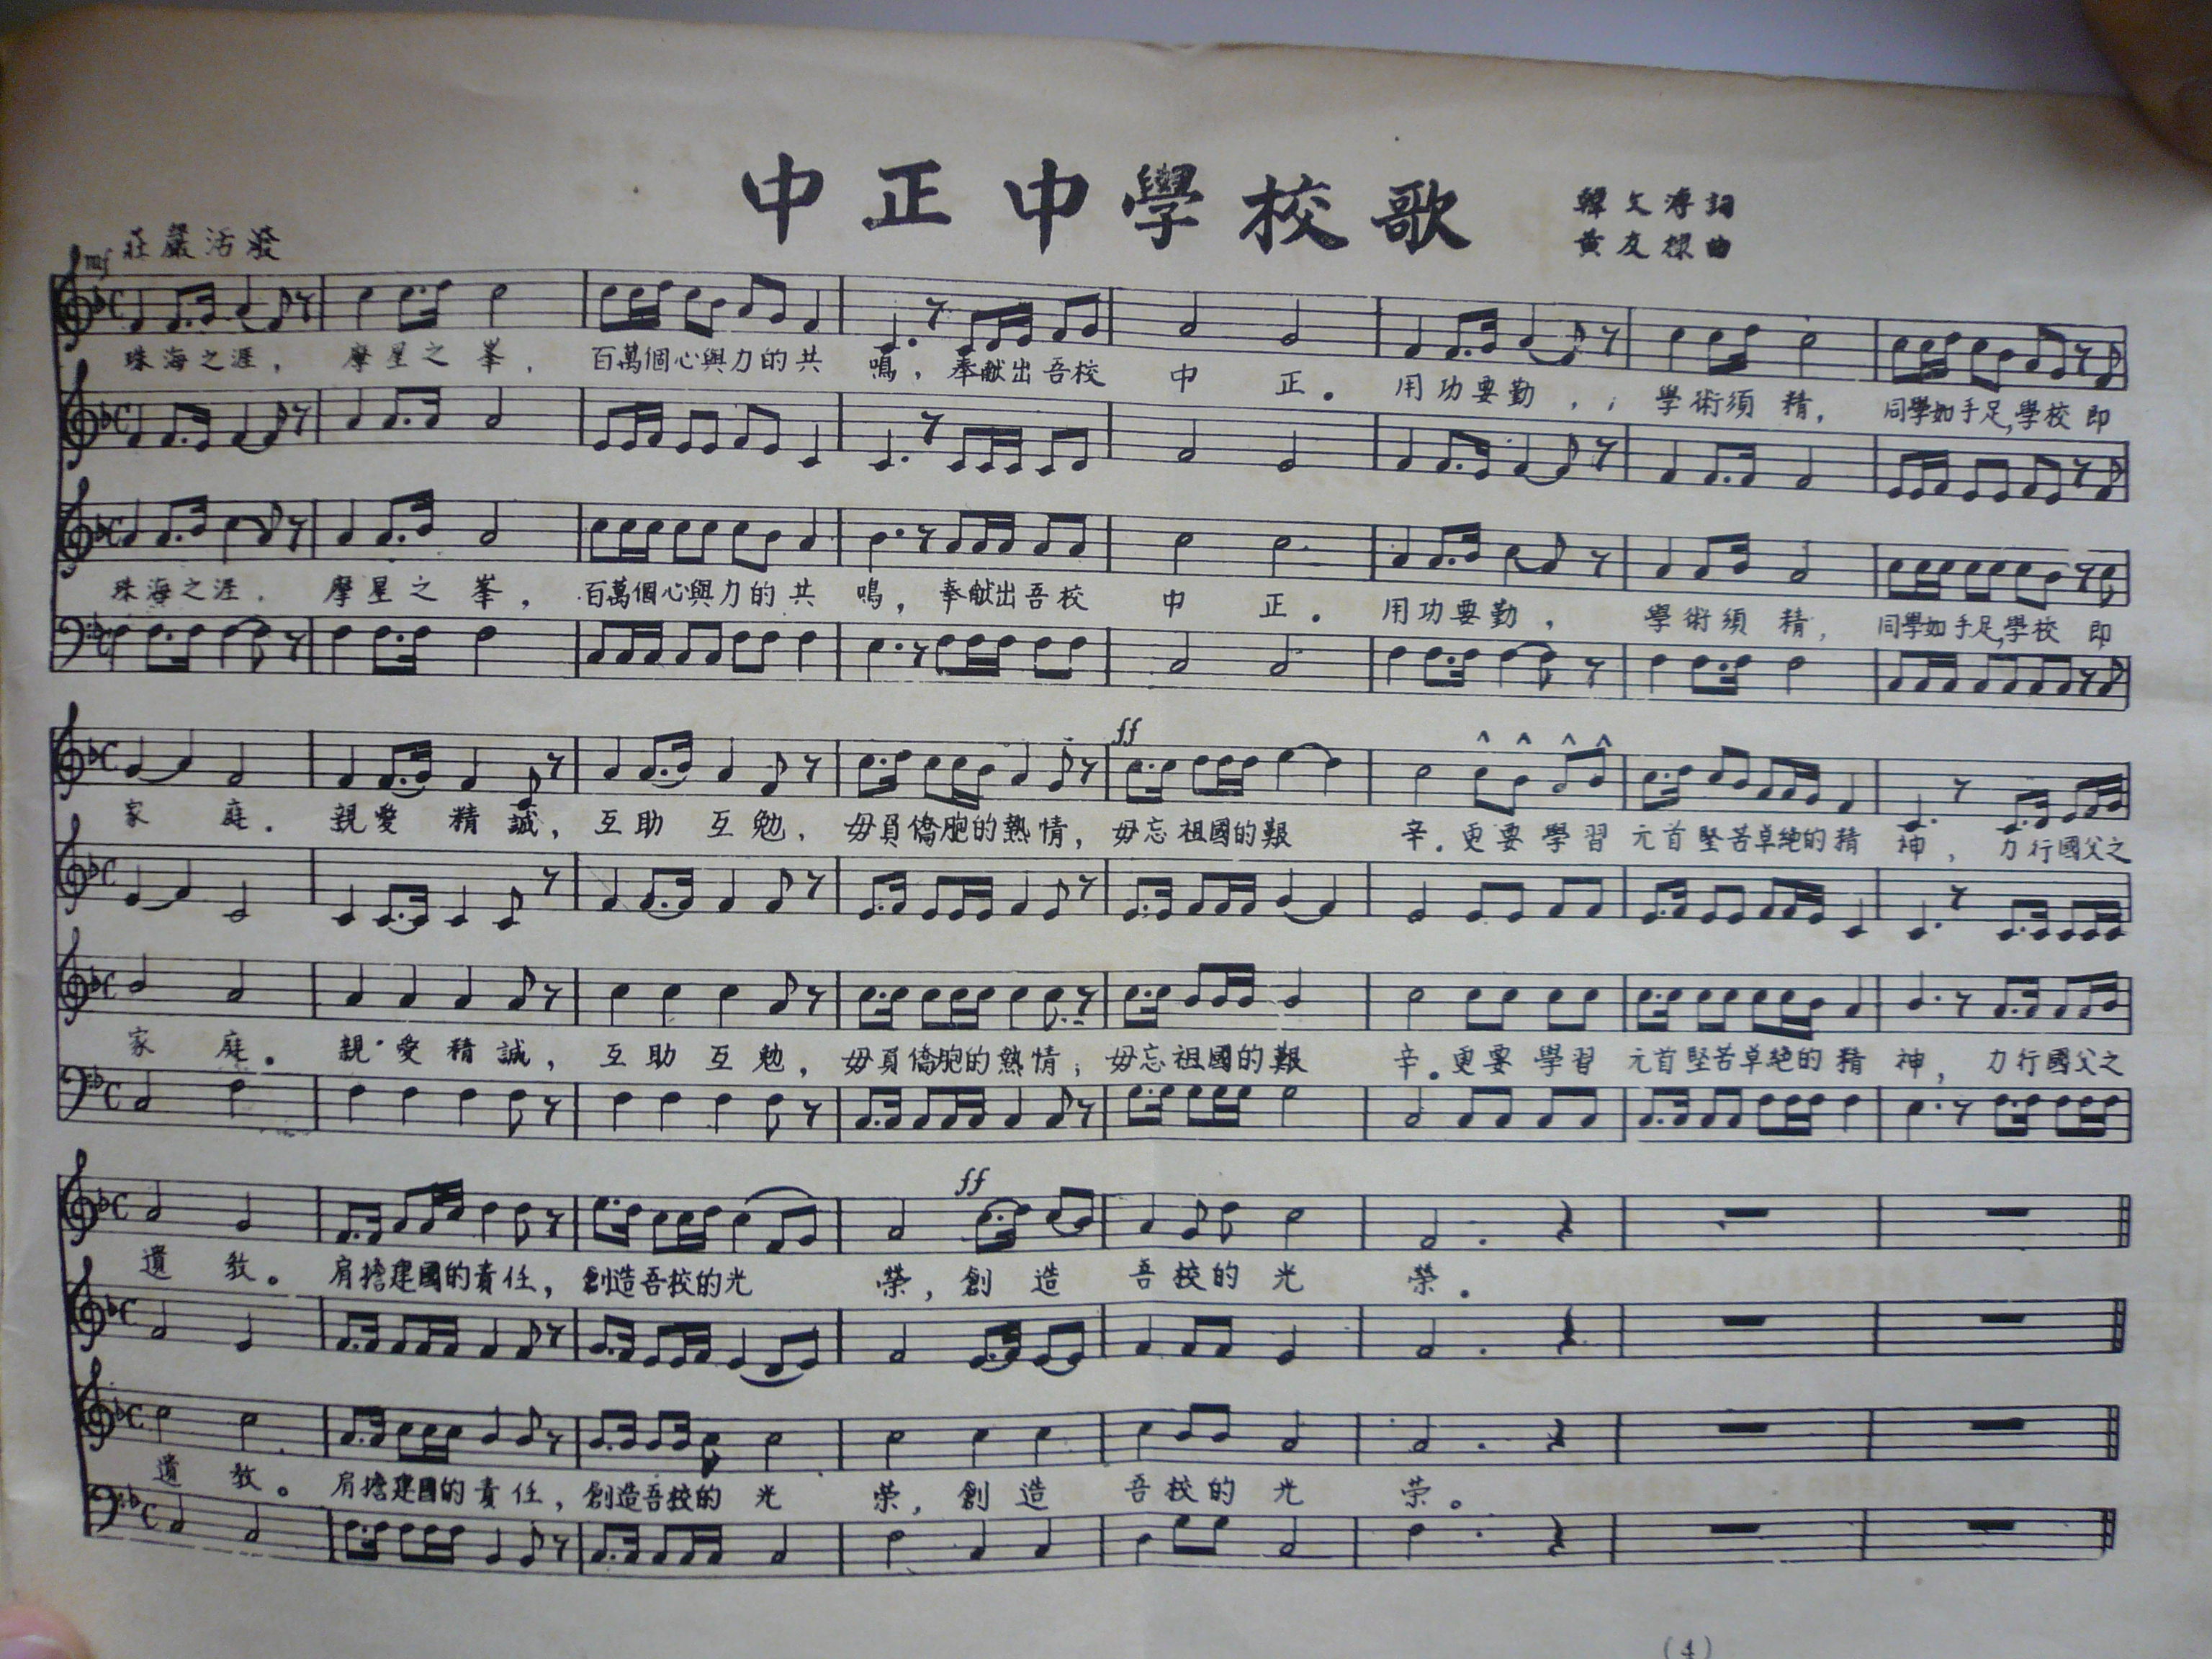 中正中學校歌
韓文溥詞
黃友棣曲
莊嚴活潑
mf
珠海之涯，摩星之峯，百萬個心與力的共鳴，奉献出吾校中正。用功要勤，學術須精，同學如手足，學校即
珠海之涯，摩星之峯，百萬個心與力的共鳴，奉献出吾校中正。用功要勤，學術須精，同學如手足，學校即
ff
家庭。親愛精誠，互助互勉，毋負僑胞的熱情，毋忘祖國的艱辛。更要學習元首堅苦卓絶的精神，力行國父之
家庭。親愛精誠，互助互勉，毋負僑胞的熱情；毋忘祖國的艱辛。更要學習元首堅苦卓絶的精神，力行國父之
ff
遺教。肩擔建國的責任，創造吾校的光榮，創造吾校的光榮。
遺教。肩擔建國的責任，創造吾校的光榮，創造吾校的光榮。
(4)